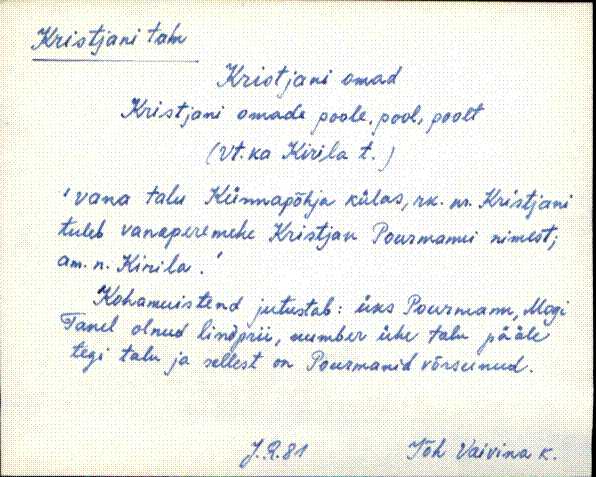 Kristjani talu
Kristjani omad
Kristjani omade poole, pool, poolt
(vt. ka Kirila t.)
'vana talu Künnapõhja külas, rk. nr. Kristjani
tuleb vanaperemehe Kristjan Pourmanni nimest;
am. n. Kirila.'
Kohamuistend jutustab: üks Pourmann, Mogi
Tanel olnud linöprii, number ühe talu pääle
tegi talu ja sellest on Pourmanid võrsunud.
J.R.81 Jõh Vaivina k.